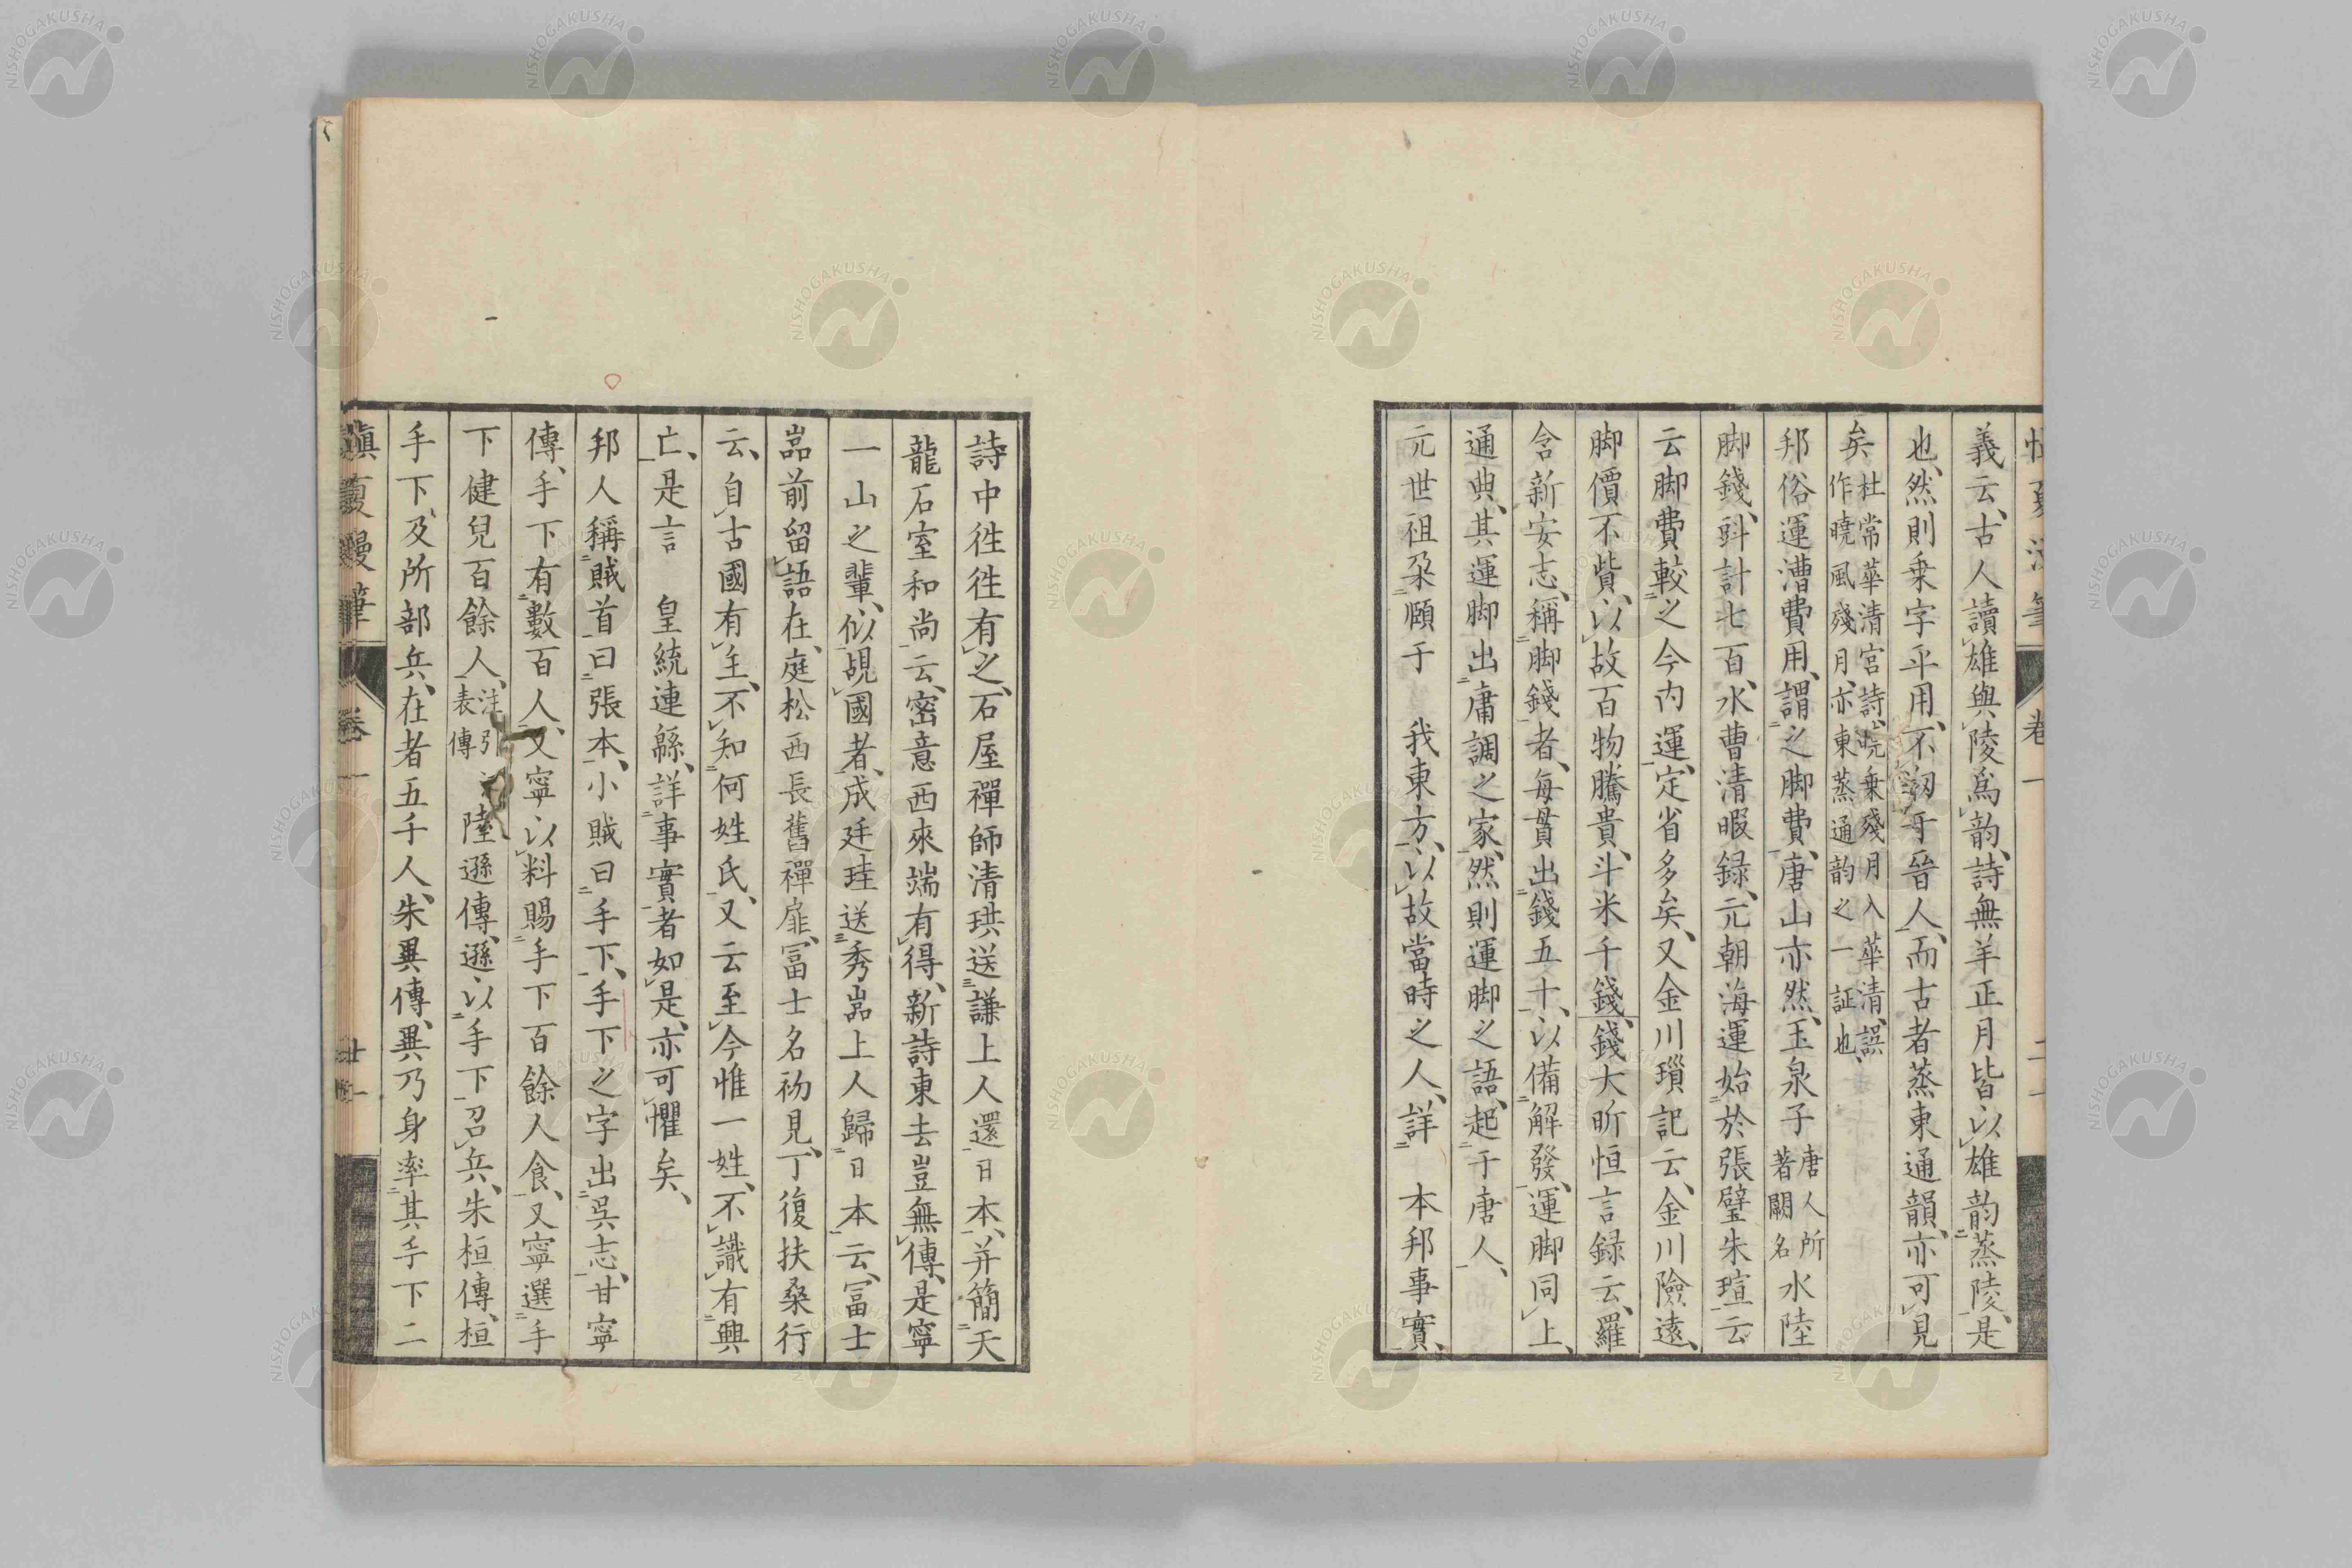 義云、古人讀雄與陵爲韵、詩無羊正月皆以雄韵蒸陵、是
也、然則乗字平用、不剏于晉人、而古者蒸東通韻、亦可見
矣杜常華清宮詩、曉乗殘月入華清、誤作曉風殘月、亦東蒸通韵之一証也、
邦俗運漕費用、謂之脚費、唐山亦然、玉泉子唐人所著闕名水陸
脚錢、斟計七百、水曹清暇録、元朝海運始於張璧朱瑄云
云脚費較之今內運、定省多矣、又金川瑣記云、金川險遠、
脚價不貲、以故百物騰貴、斗米千錢、錢大昕恒言録云、羅
含新安志、稱脚錢者、每貫出錢五十、以備解發、運脚同上、
通典、其運脚出庸調之家、然則運脚之語、起于唐人、
元世祖朶頤于 我東方、以故當時之人、詳 本邦事實、
詩中徃徃有之、石屋禪師清珙送謙上人還日本、并簡天
龍石室和尚云、密意西來端有得、新詩東去豈無傳、是寧
一山之輩、似覘國者、成廷珪送秀嵓上人歸日本云、冨士
嵓前留語在、庭松西長舊禪扉、冨士名初見、丁復扶桑行
云、自古國有主、不知何姓氏、又云至今惟一姓、不識有興
亡、是言 皇統連緜、詳事實者如是、亦可懼矣、
邦人稱賊首曰張本、小賊曰手下、手下之字出吳志、甘寧
傳、手下有數百人、又寧以料賜手下百餘人食、又寧選手
下健兒百餘人、注引江表傳陸遜傳、遜以手下召兵、朱桓傳、桓
手下及所部兵、在者五千人、朱異傳、異乃身率其手下二
愼夏漫筆 卷一